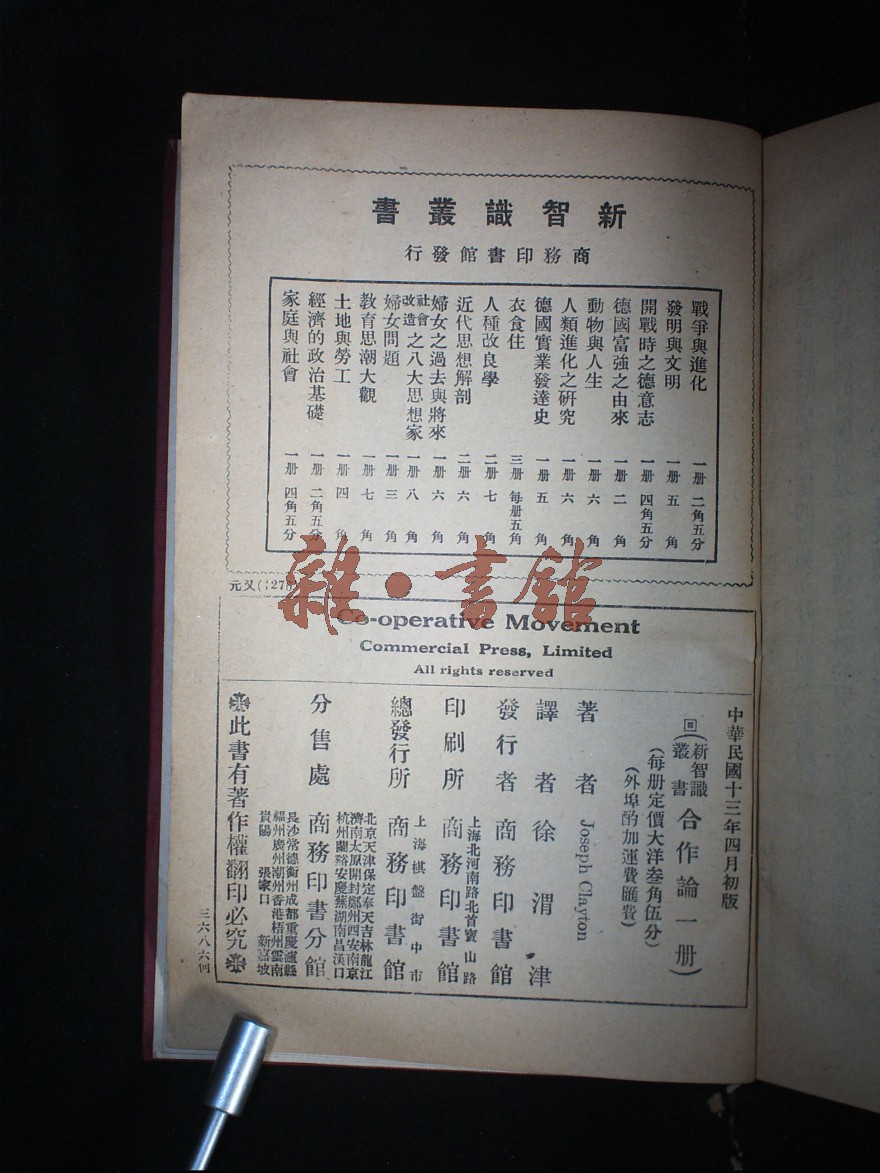 新智識叢書
商務印書館發行
戰爭與進化 一册 二角五分
發明與文明 一册 五角
開戰時之德意志 一册 四角五分
德國富強之由來 一册 二角
動物與人生 一册 六角
人類進化之研究 一册 六角
德國實業發達史 一册 五角
衣食住 三册 每册五角
人種改良學 二册 七角
近代思想解剖 二册 六角
婦女之過去與將來 一册 六角
社會改造之八大思想家 一册 八角
婦女問題 一册 三角
教育思潮大觀 一册 七角
土地與勞工 一册 四角
經濟的政治基礎 一册 二角五分
家庭與社會 一册 四角五分
雜·書館
Co-operative Movement
Commercial Press, Limited
All rights reserved
中華民國十三年四月初版
(新智識叢書 合作論一册)
(每册定價大洋叁角伍分)
(外埠酌加運費匯費)
著者 Joseph Clayton
譯者 徐渭津
發行者 商務印書館
印刷所 上海北河南路北首寶山路 商務印書館
總發行所 上海棋盤街中市 商務印書館
分售處 商務印書分館
北京天津保定奉天吉林龍江
濟南太原開封鄭州西安南京
杭州蘭谿安慶蕪湖南昌漢口
長沙常德衡州成都重慶瀘縣
福州廣州潮州香港梧州雲南
貴陽 張家口 新嘉坡
此書有著作權翻印必究
三六八六何